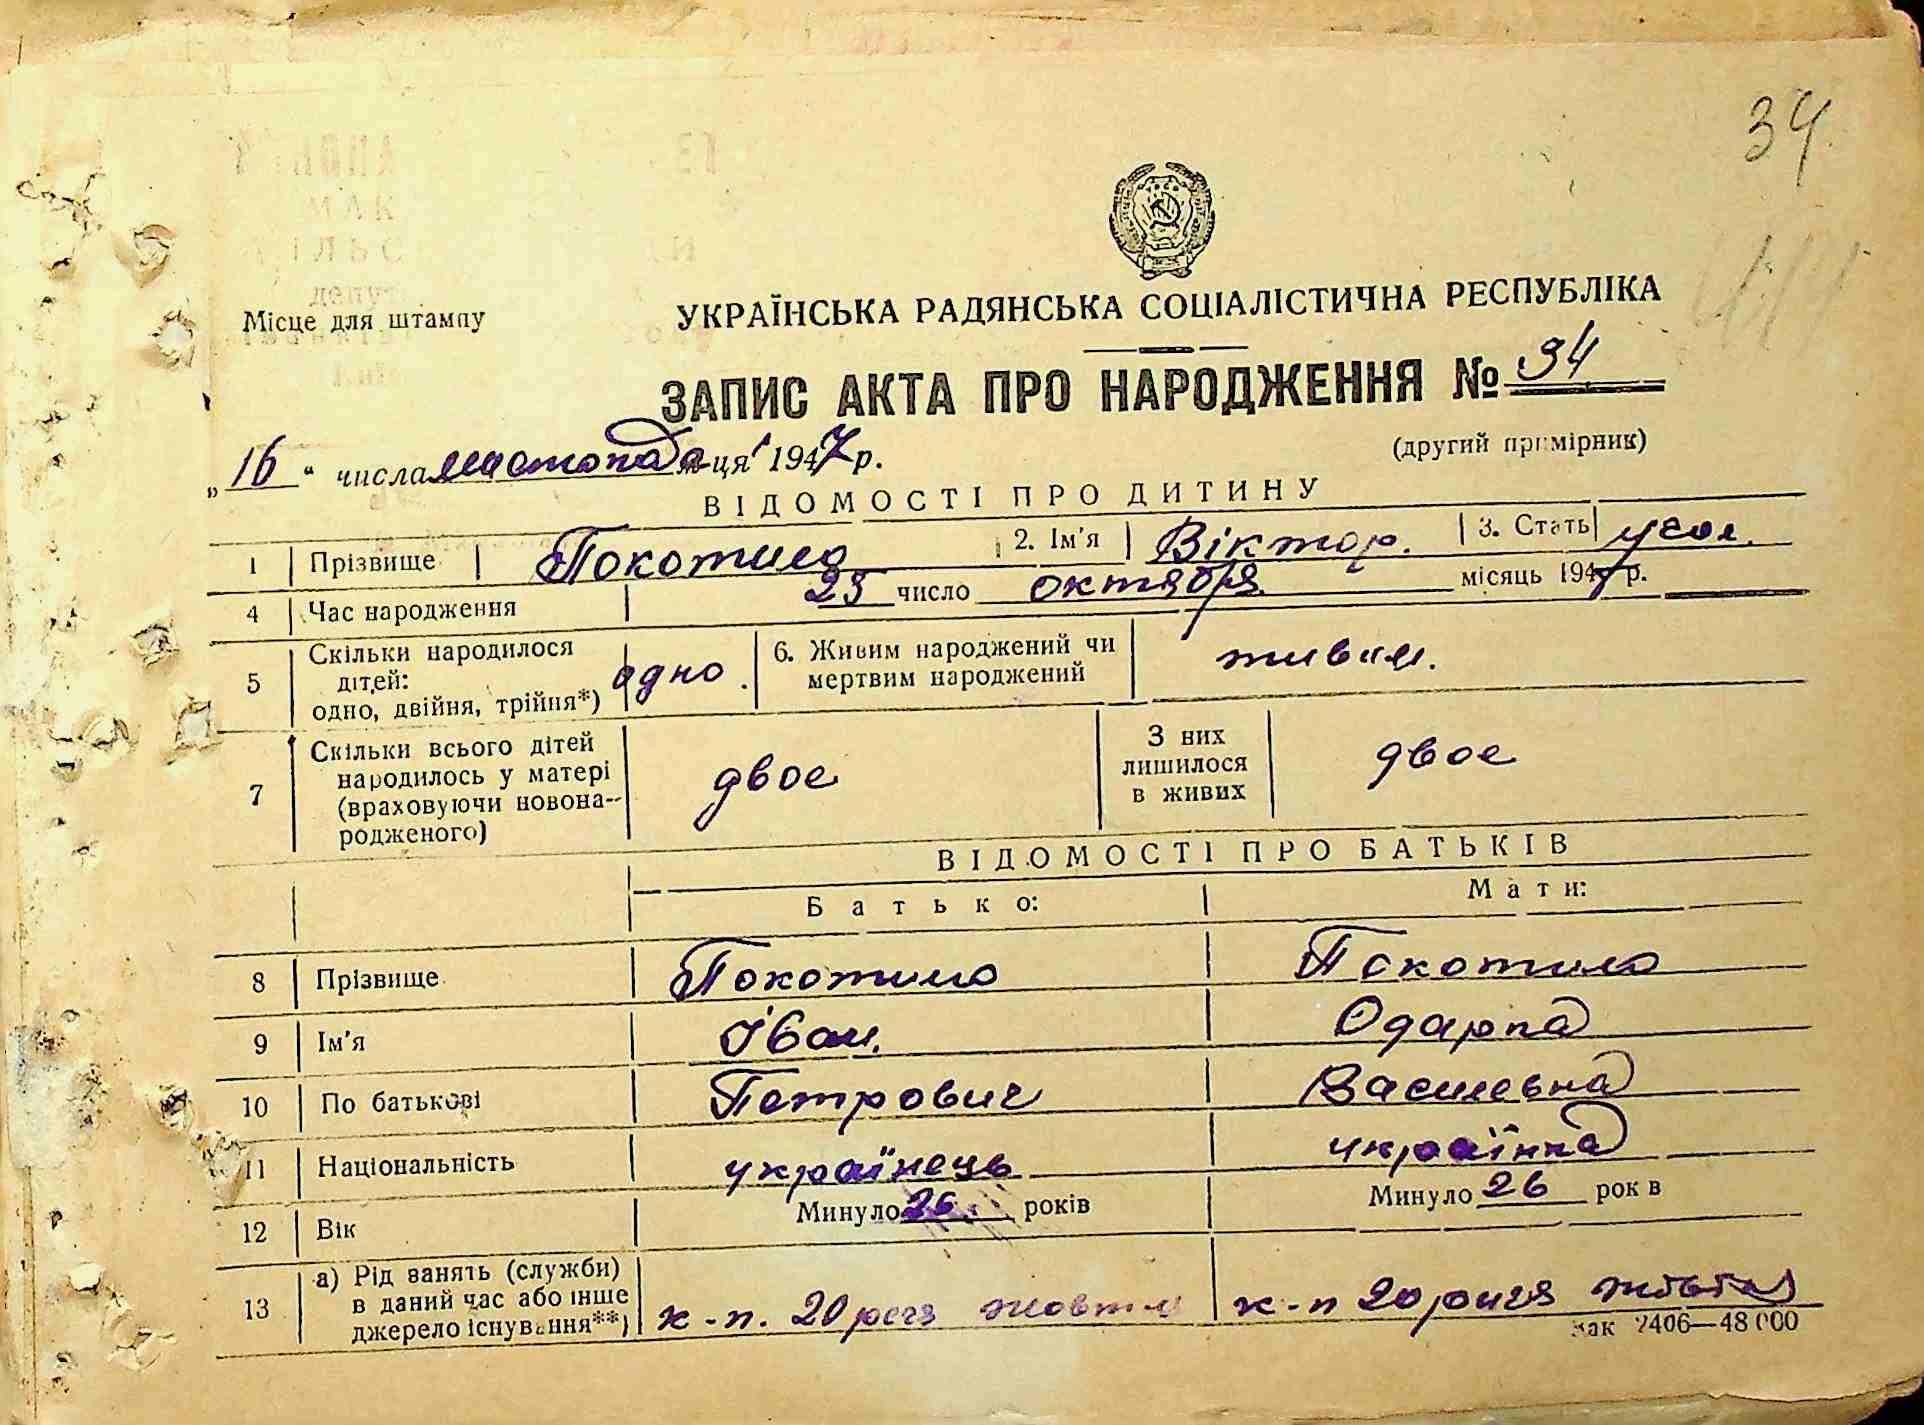 34
Місце для штампу
УКРАЇНСЬКА РАДЯНСЬКА СОЦІАЛІСТИЧНА РЕСПУБЛІКА
ЗАПИС АКТА ПРО НАРОДЖЕННЯ № 94
(другий примірник)
„16“ числа листопада м-ця 1947 р.
ВІДОМОСТІ ПРО ДИТИНУ
1 Прізвище Покотило 2. Ім'я Віктор. 3. Стать чол.
4 Час народження 25 число октября місяць 1947 р.
5 Скільки народилося дітей: одно, двійня, трійня*) одно. 6. Живим народжений чи мертвим народжений живим.
7 Скільки всього дітей народилось у матері (враховуючи новона-родженого) двое З них лишилося в живих двое
ВІДОМОСТІ ПРО БАТЬКІВ
Батько: Мати:
8 Прізвище Покотило Покотило
9 Ім'я Іван. Одарка
10 По батькові Петрович Василевна
11 Національність українець українка
12 Вік Минуло 26 років Минуло 26 рок в
13 а) Рід занять (служби) в даний час або інше джерело існування**) к-п. 20 жовтня к-п 20 жовтня
зак 2406—48 000